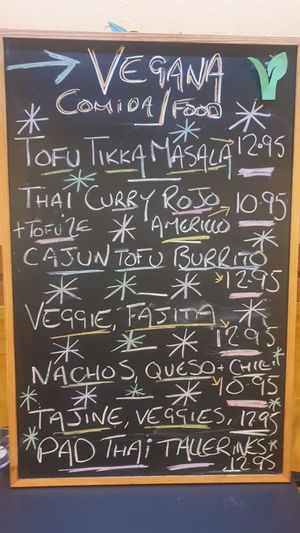 VEGANA
COMIDA/FOOD
TOFU TIKKA MASALA 12.95
THAI CURRY ROJO 10.95
+TOFU 2€ AMERILLO
CAJUN TOFU BURRITO
12.95
VEGGIE, FAJITA
12.95
NACHOS, QUESO + CHILI
10.95
TAJINE, VEGGIES, 12.95
PAD THAI TALLERINES
12.95